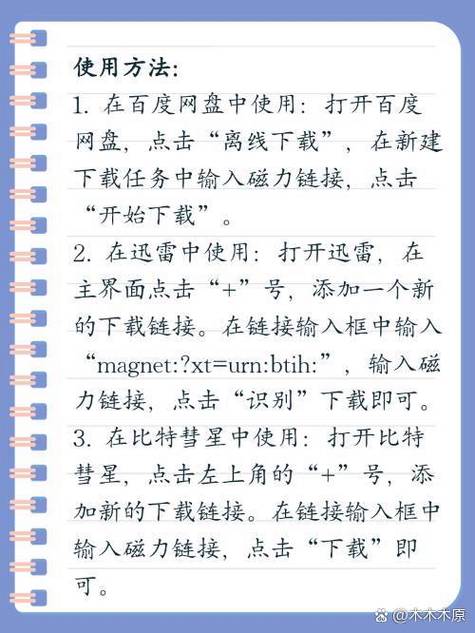 使用方法：
1. 在百度网盘中使用：打开百度
网盘，点击“离线下载”，在新建
下载任务中输入磁力链接，点击
“开始下载”。
2. 在迅雷中使用：打开迅雷，在
主界面点击“+”号，添加一个新
的下载链接。在链接输入框中输入
“magnet:?xt=urn:btih:”，输入磁
力链接，点击“识别”下载即可。
3. 在比特彗星中使用：打开比特
彗星，点击左上角的“+”号，添
加新的下载链接。在链接输入框中
输入磁力链接，点击“下载”即
可。
@木木木原